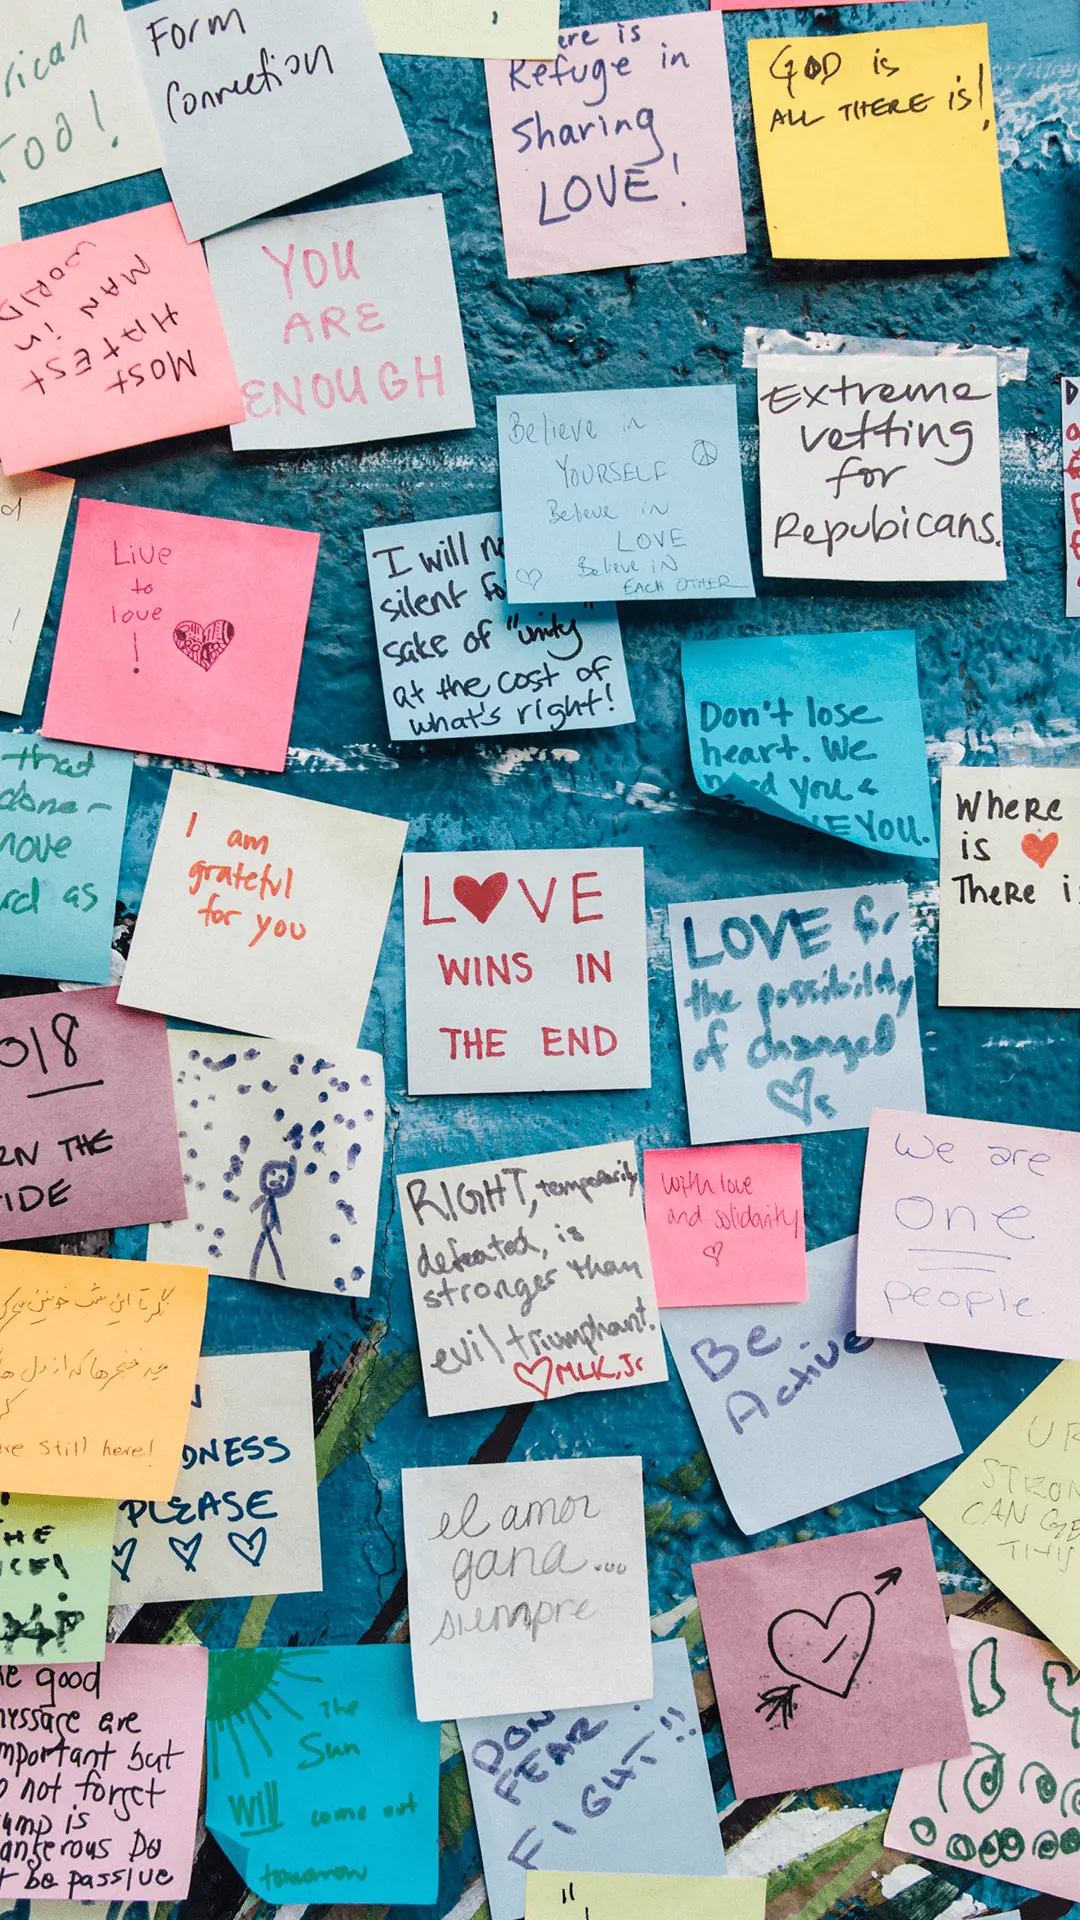 rican
Too!
Form
Connection
ere is
Refuge in
Sharing
LOVE!
GOD is
ALL THERE IS!
MOST
HATEST
MAN in
WORLD
YOU
ARE
ENOUGH
Extreme
vetting
for
Repubicans.
Believe in
YOURSELF
Believe in
LOVE
Believe IN
EACH OTHER
Live
to
love
!
I will no
silent fo
sake of "unity"
at the cost of
what's right!
Don't lose
heart. We
need you &
VE YOU.
Where
is
There i
that
done-
move
rd as
I am
grateful
for you
LOVE
WINS IN
THE END
LOVE for
the possibility
of changed
018
RN THE
TIDE
RIGHT, temporarily
defeated, is
stronger than
evil triumphant.
MLK, Jr
with love
and solidarity
We are
one
people.
Be
Active
re still here!
DNESS
PLEASE
UR
STRON
CAN GE
THIS
el amor
gana...
siempre
HE
e good
message are
mportant but
o not forget
ump is
angerous Do
t be passive
The
Sun
will come out
tomorrow
DON
FEAR
FIGHT!!